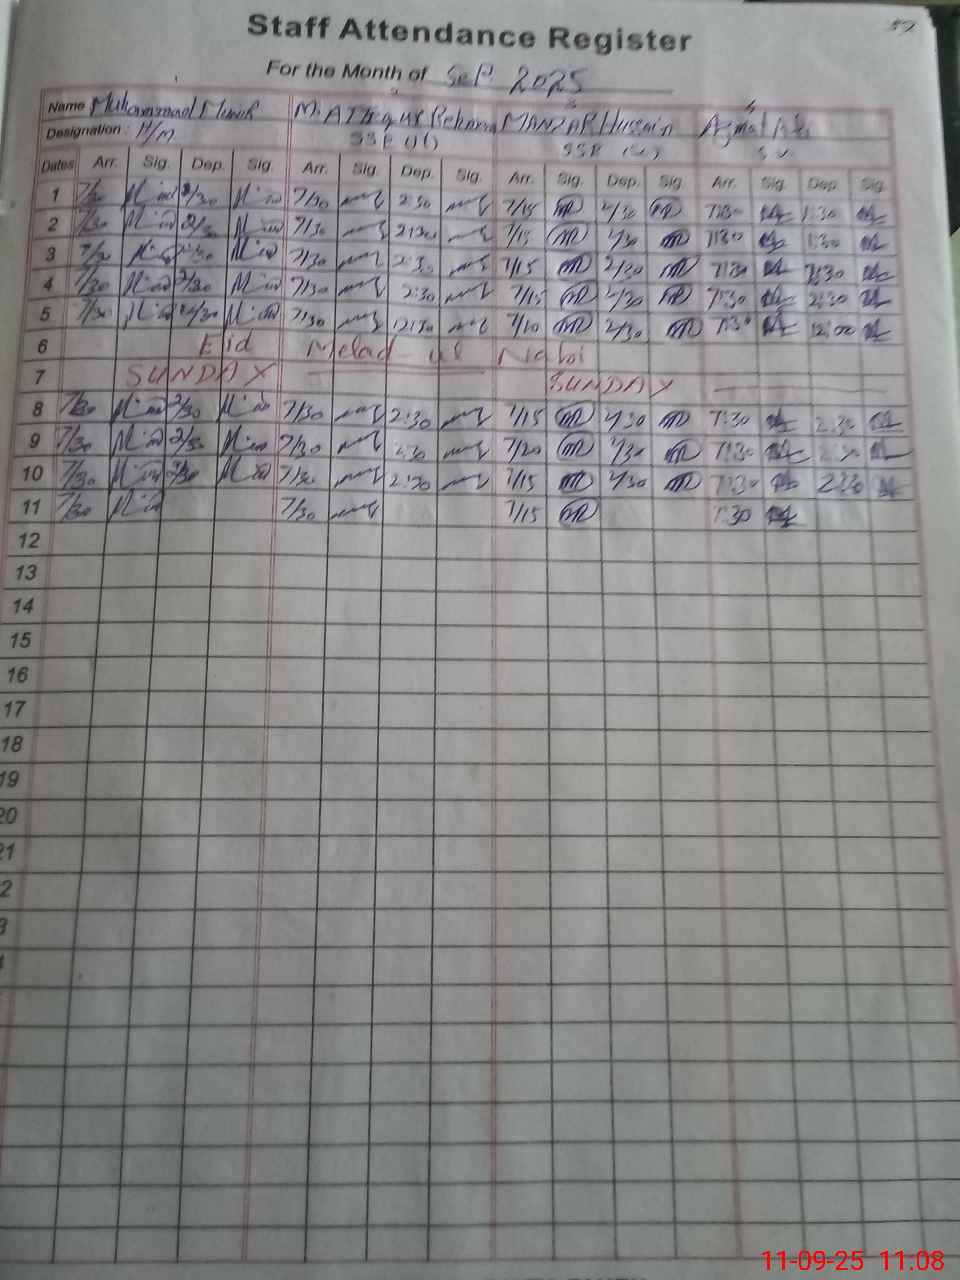 57
Staff Attendance Register
For the Month of Sep 2025
Name Muhammad Munir M. Attiq ur Rehman MANZAR Hussain Azmat
Designation : H/M SSE SSE
Dates Arr. Sig. Dep. Sig. Arr. Sig. Dep. Sig. Arr. Sig. Dep. Sig. Arr. Sig. Dep Sig
1 7/30 2/30 7/30 2:30 7/15 2/30 7:30 1:30
2 7/30 2/30 7/30 2:30 7/15 2/30 7:30 1:30
3 7/30 2/30 7/30 2:30 7/15 2/30 7:30
4 7/30 2/30 7/30 2:30 7/15 2/30 7:30 2:30
5 7/30 7/30 12:30 7/10 2/30 7:30 12:00
6 Eid Melad ul Nabi
7 SUNDAY SUNDAY
8 7/30 2/30 7/30 2:30 7/15 2/30 7:30 2:30
9 7/30 2/30 7/30 2:30 7/20 2/30 7:30 2:30
10 7/30 2/30 7/30 2:30 7/15 2/30 7:30 2:30
11 7/30 7/30 7/15 7:30
12
13
14
15
16
17
18
19
20
21
2
3
11-09-25 11:08